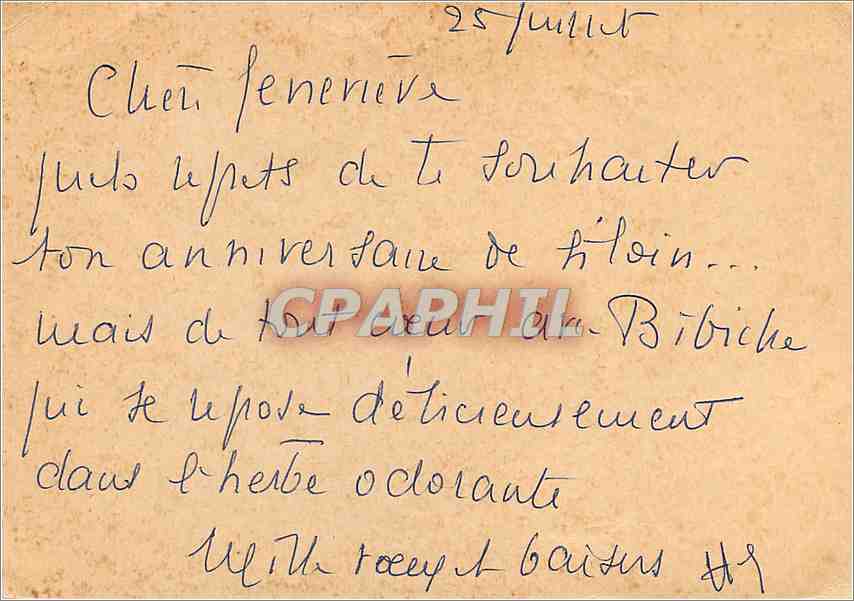 25 Juillet
Chère Geneviève
quels regrets de te souhaiter
ton anniversaire de si loin...
mais de tout cœur avec Bibiche
qui se repose délicieusement
dans l'herbe odorante
Mille vœux et baisers
CPAPHIL